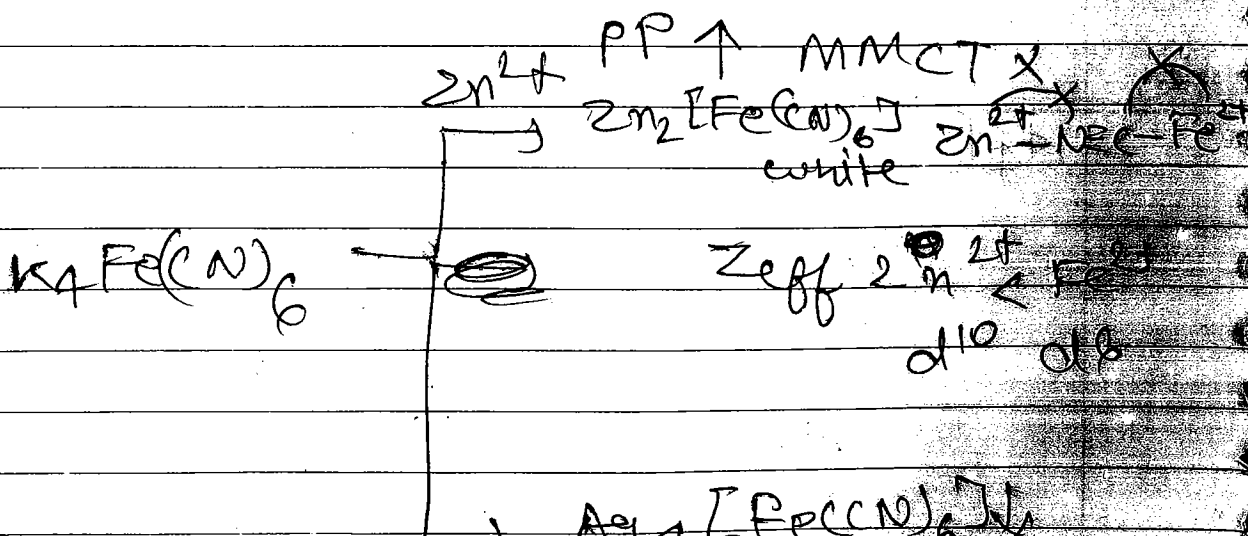 PP ↑ MMCT X
Zn²⁺ Zn₂[Fe(CN)₆] Zn²⁺-N≡C-Fe²⁺
white
K₄Fe(CN)₆ Zeff Zn²⁺ < Fe²⁺
d¹⁰ d⁶
Ag₄[Fe(CN)₆]↓